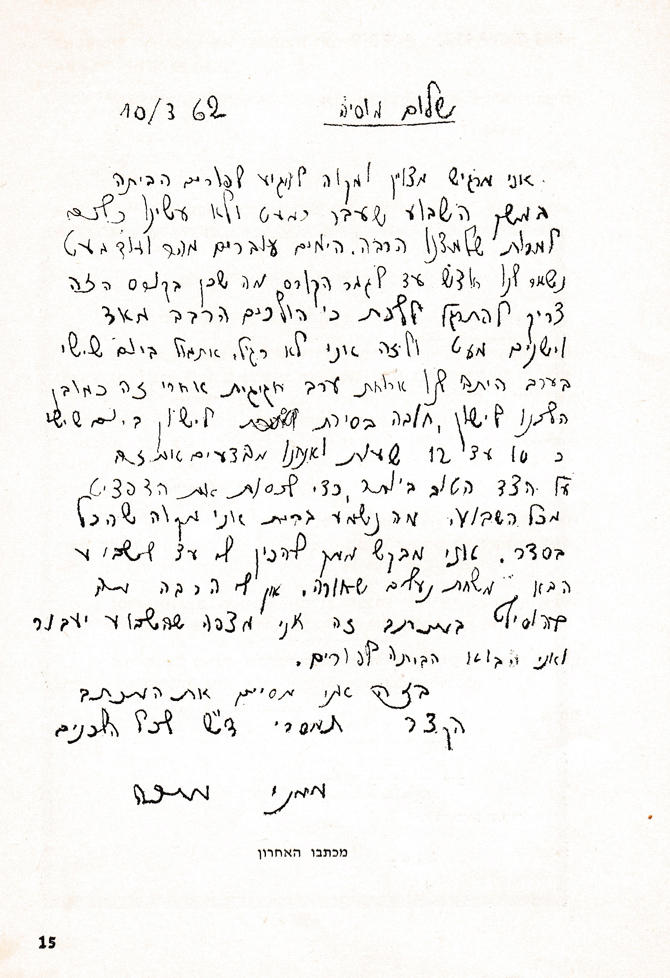 שלום מוסיה 10/3 62
אני מרגיש מצוין ומקוה להגיע לפורים הביתה
במשך השבוע שעבר כמעט ולא עשינו כלום
למרות שלמדנו הרבה. הימים עוברים מהר ועוד מעט
נשאר לנו חדש עד לגמר הקורס מה שכן בקורס הזה
צריך להתרגל ללכת כי הולכים הרבה מאד
וישנים מעט ולזה אני לא רגיל, אתמול ביום שישי
בערב היתה לנו ארוחת ערב חגיגית אחרי זה כמובן
הלכנו לישון, חובה בסירת לישון ביום שישי
כ 10 עד 12 שעות ואנחנו מבצעים את זה
על הצד הטוב ביותר, כדי לכסות את הדפציט
מכל השבוע. מה נשמע בבית אני מקוה שהכל
בסדר. אני מבקש ממך להכין לי עד לשבוע
הבא משחת נעלים שחורה. אין לי הרבה מה
להוסיף במכתב זה אני מצפה שהשבוע יעבור
ואני אבוא הביתה לפורים.
בזה אני מסיים את המכתב
הקצר תמסרי ד"ש לכל השכנים
ממני משה
מכתבו האחרון
15